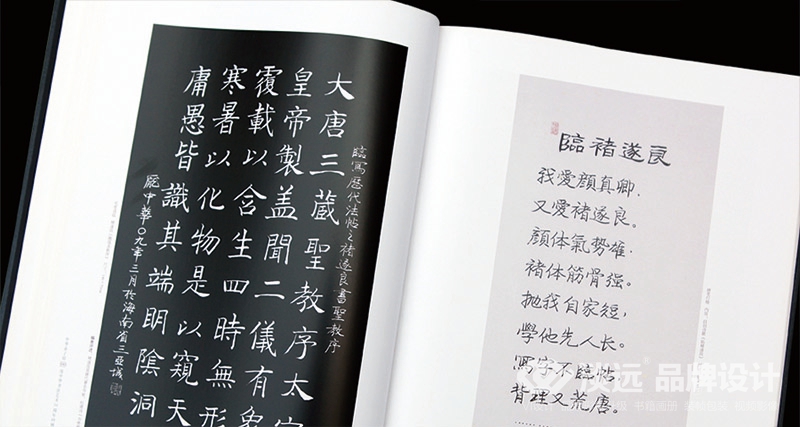 大唐三藏聖教序太宗
臨寫歷代法帖之褚遂良書聖教序
皇帝製盖聞二儀有象
覆載以含生四時無形
寒暑以化物是以窺天
庸愚皆識其端明陰洞
龐中華〇九年三月於海南省三亞城
臨褚遂良
我愛顏真卿，
又愛褚遂良。
顏体氣勢雄，
褚体筋骨强。
抛我自家短，
學他先人长。
寫字不臨帖，
背理又荒唐。
淡远® 品牌设计
书籍画册